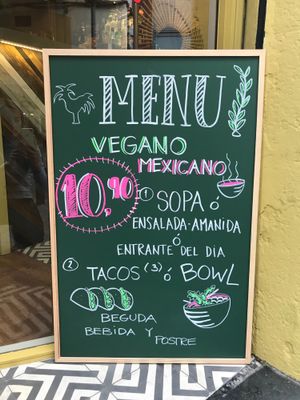 MENU
VEGANO
MEXICANO
10,90
1 SOPA Ó
ENSALADA-AMANIDA
Ó
ENTRANTE DEL DIA
2 TACOS (3) Ó BOWL
BEGUDA
BEBIDA Y
POSTRE